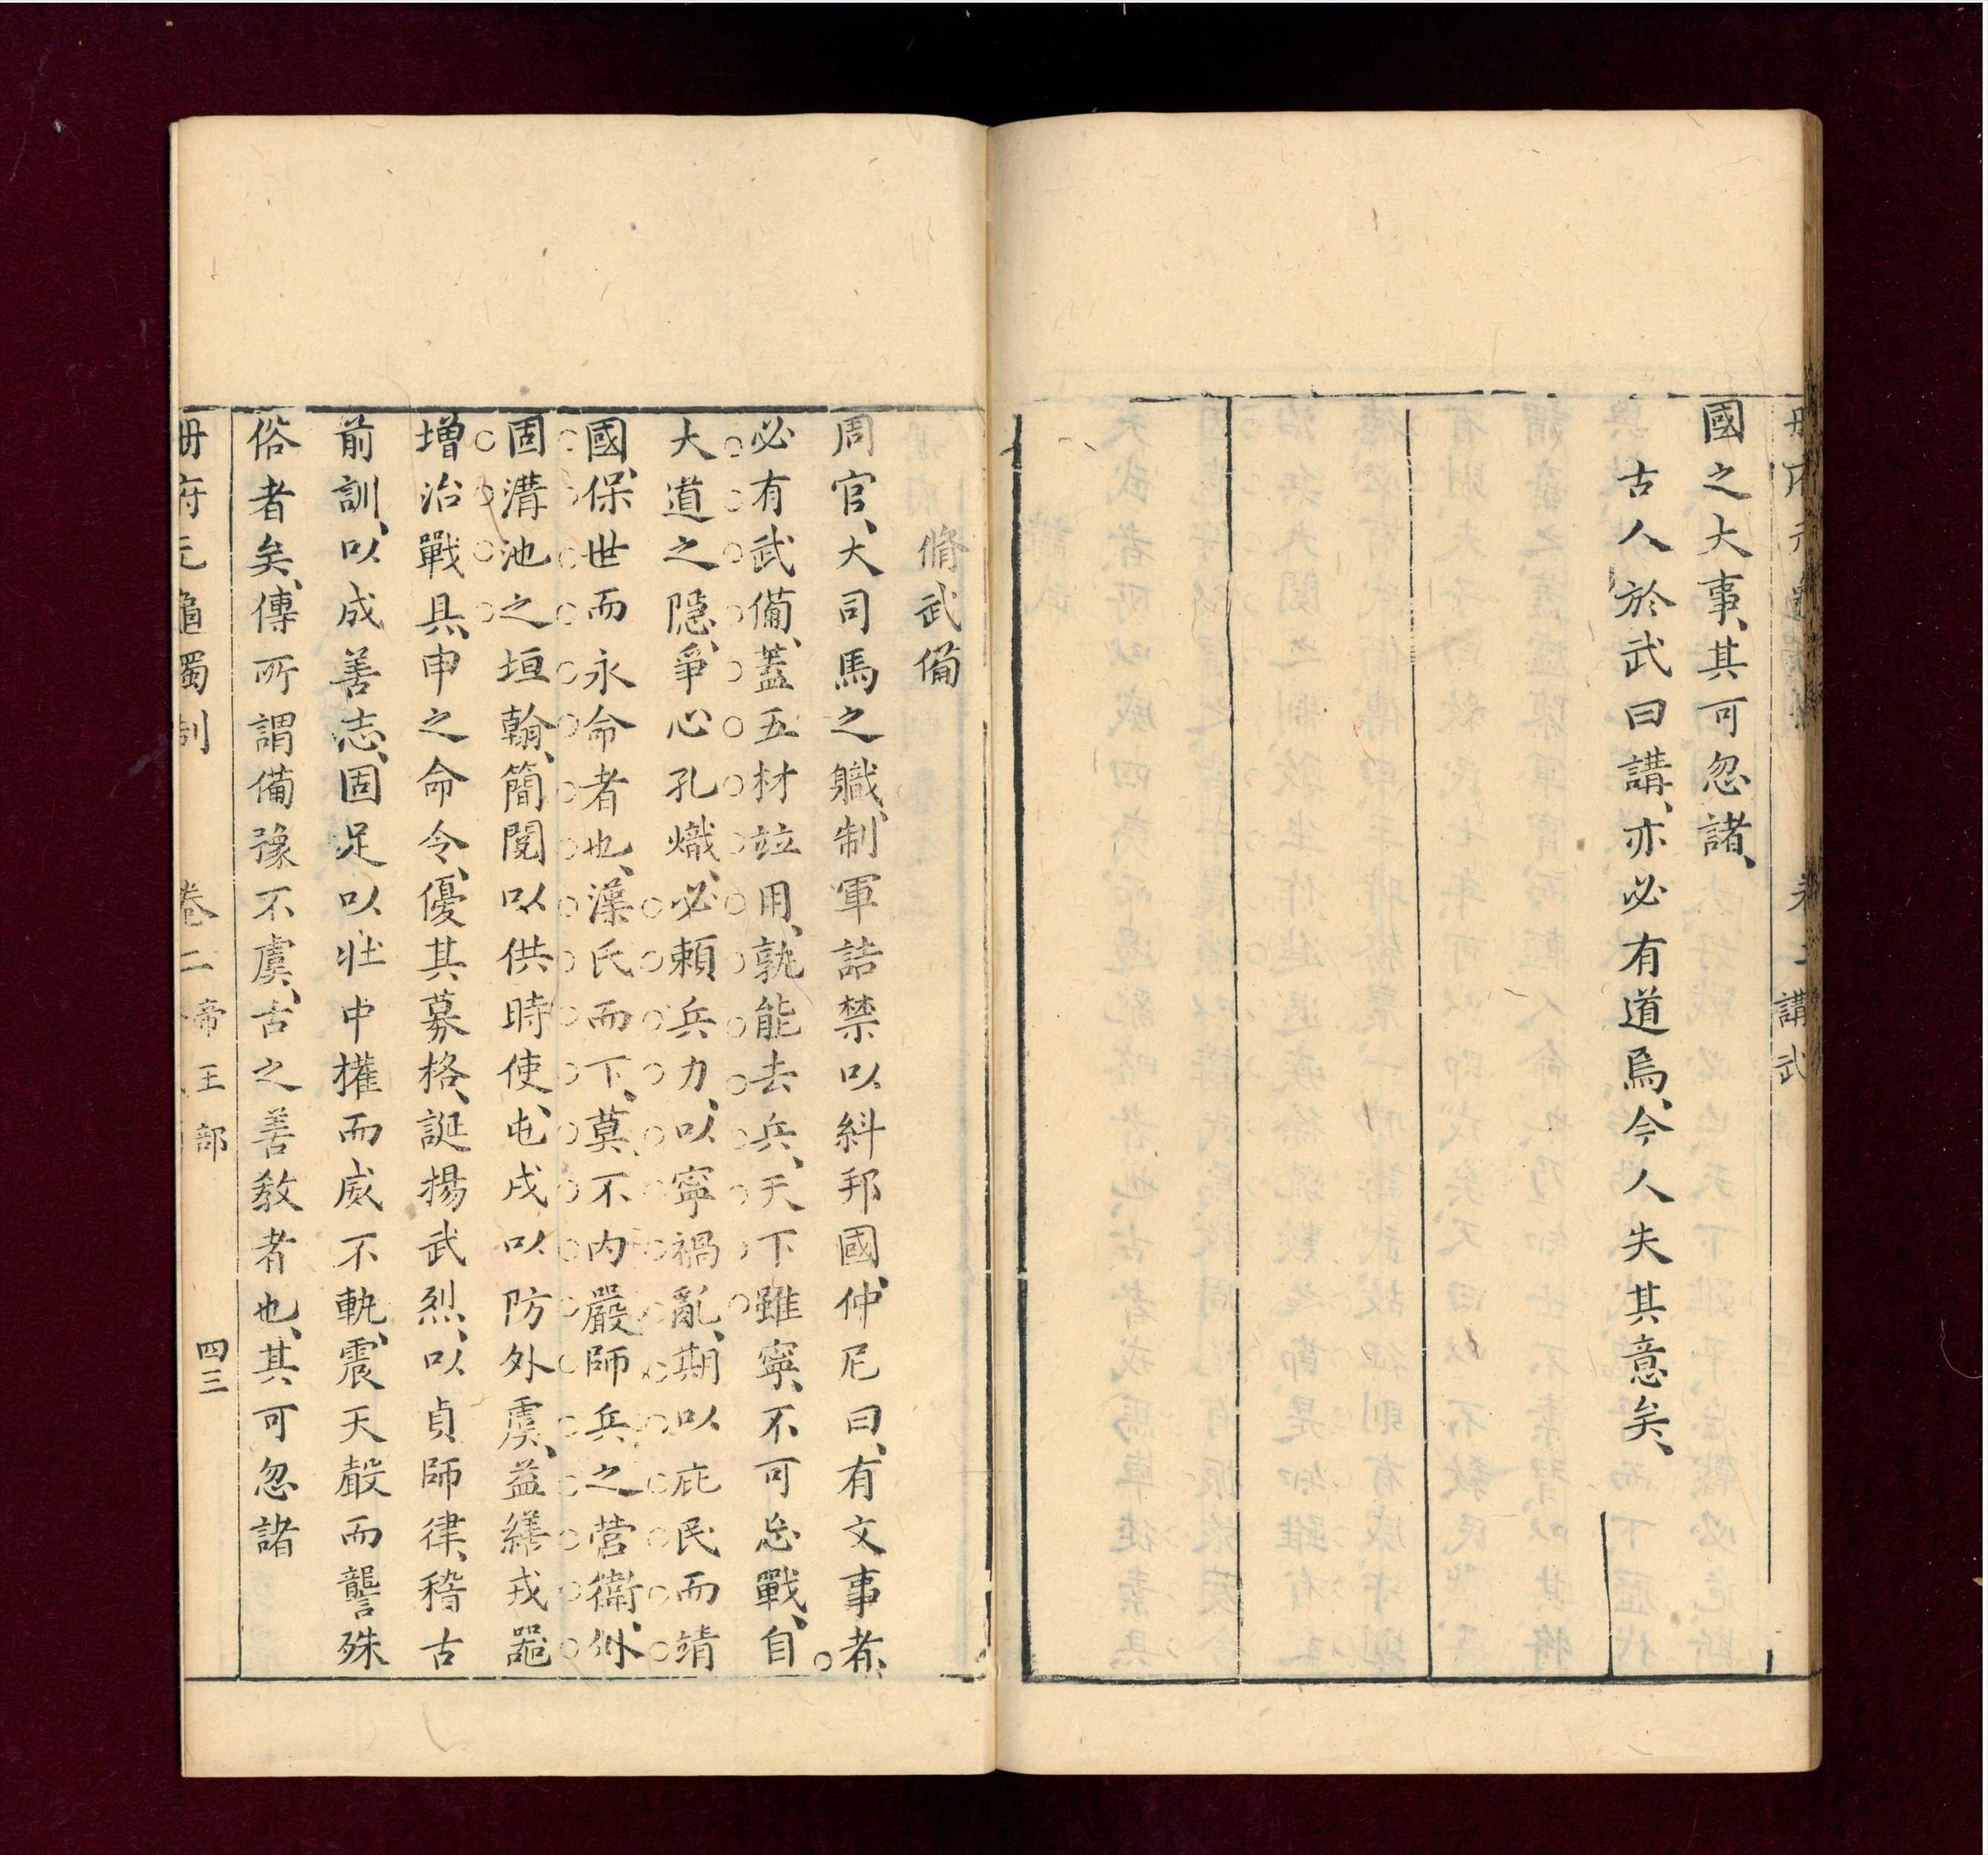 國之大事、其可忽諸、
古人於武曰講、亦必有道焉、今人失其意矣、
講武
脩武備
周官、大司馬之職、制軍詰禁以糾邦國、仲尼曰、有文事者、
必有武備、蓋五材竝用、孰能去兵、天下雖寧、不可忘戰、自
大道之隱、爭心孔熾、必賴兵力、以寧禍亂、期以庇民而靖
國、保世而永命者也、漢氏而下、莫不內嚴師兵之營衛、外
固溝池之垣翰、簡閱以供時使、屯戍以防外虞、益繕戎器
增治戰具、申之命令、優其募格、誕揚武烈、以貞師律、稽古
前訓、以成善志、固足以壯中權而威不軌、震天聲而讋殊
俗者矣、傳所謂備豫不虞、古之善教者也、其可忽諸
冊府元龜獨制 卷二 帝王部 四三